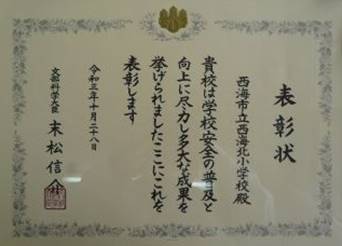 表彰状
西海市立西海北小学校殿
貴校は学校安全の普及と
向上に尽力し多大な成果を
挙げられましたここにこれを
表彰します
令和三年十月二十八日
文部科学大臣 末松信